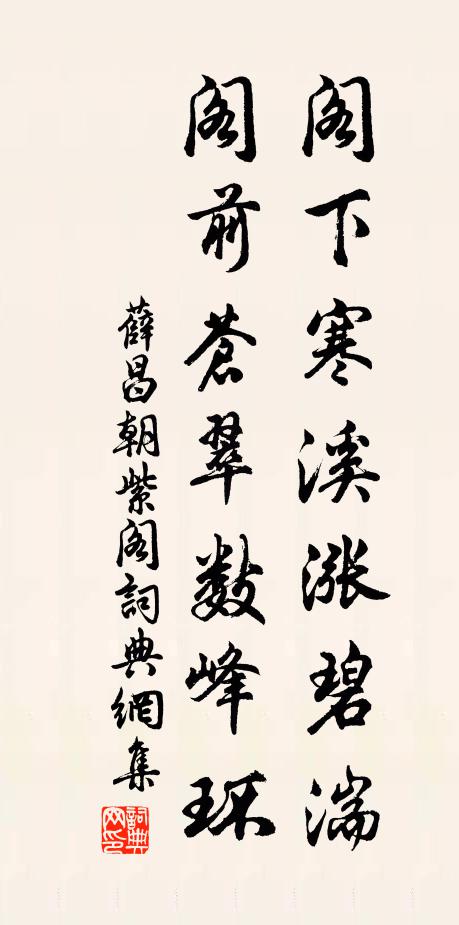 阁下寒溪涨碧湍
阁前苍翠数峰环
薛昌朝紫阁词典网集
词典网印